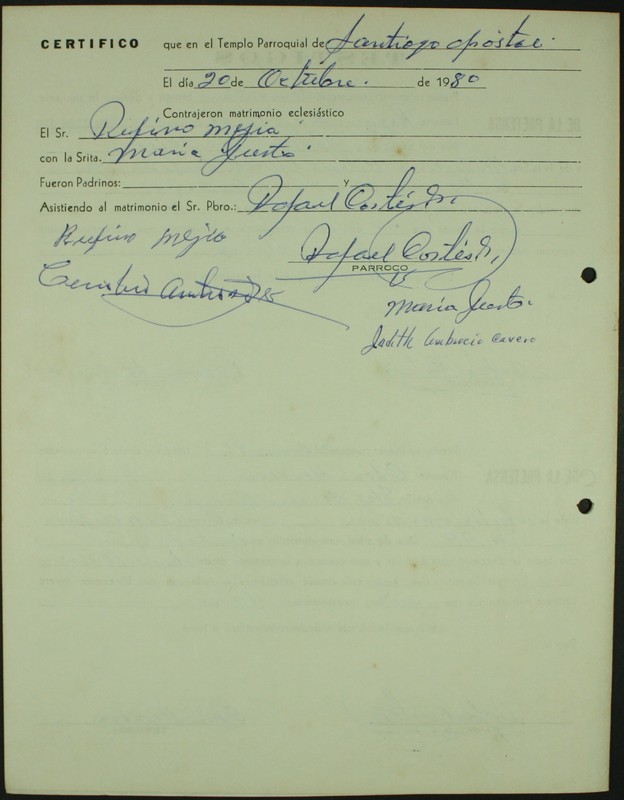 CERTIFICO que en el Templo Parroquial de Santiago Apóstol.
El día 20 de Octubre. de 1980
Contrajeron matrimonio eclesiástico
El Sr. Rufino Mejia
con la Srita. María Justo.
Fueron Padrinos: y
Asistiendo al matrimonio el Sr. Pbro.: Rafael Cortés
Rufino Mejia
Rafael Cortés
PARROCO
María Justo.
Judith Ambrocio Cavero